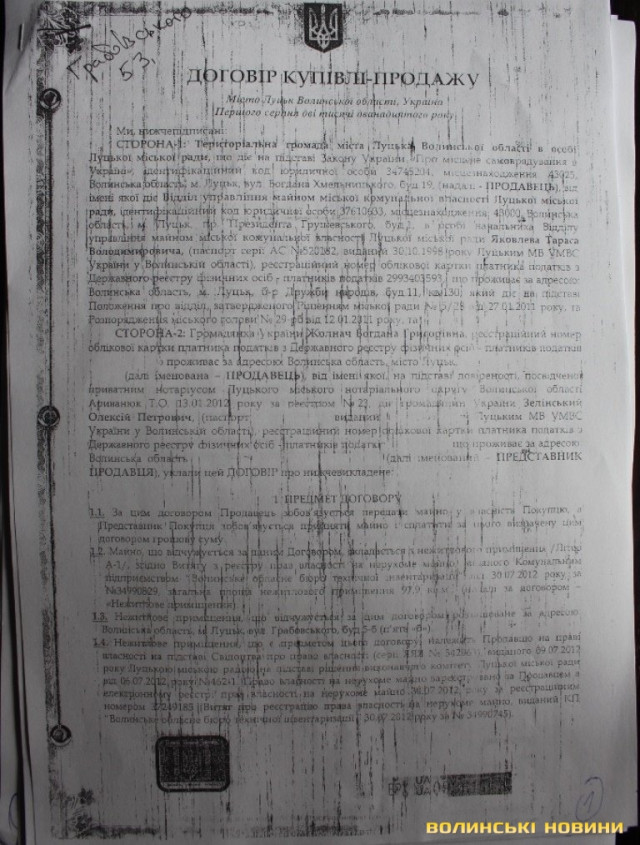 Грабовського
53.
ДОГОВІР КУПІВЛІ-ПРОДАЖУ
Місто Луцьк Волинської області, Україна
Першого серпня дві тисячі дванадцятого року
Ми, нижчепідписані:
СТОРОНА-1: Територіальна громада міста Луцька Волинської області в особі
Луцької міської ради, що діє на підставі Закону України «Про місцеве самоврядування в
Україні», ідентифікаційний код юридичної особи 34745204, місцезнаходження 43025,
Волинська область, м. Луцьк, вул. Богдана Хмельницького, буд.19, (надалі - ПРОДАВЕЦЬ), від
імені якої діє Відділ управління майном міської комунальної власності Луцької міської
ради, ідентифікаційний код юридичної особи 37610633, місцезнаходження 43000, Волинська
область, м. Луцьк, пр. Президента Грушевського, буд., в особі начальника Відділу
управління майном міської комунальної власності Луцької міської ради Яковлева Тараса
Володимировича, (паспорт серії АС №520282, виданий 30.10.1998 року Луцьким МВ УМВС
України у Волинській області), реєстраційний номер облікової картки платника податків з
Державного реєстру фізичних осіб - платників податків 2993403593, що проживає за адресою:
Волинська область, м. Луцьк, б-р Дружби народів, буд.11, кв.130, який діє на підставі
Положення про відділ, затвердженого Рішенням міської ради від 27.01.2011 року, та
Розпорядження міського голови № 29-рв від 12.01.2011 року, та
СТОРОНА-2: Громадянка України Жолнач Богдана Григорівна, реєстраційний номер
облікової картки платника податків з Державного реєстру фізичних осіб - платників податків
проживає за адресою Волинська область, місто Луцьк,
(далі іменована - ПРОДАВЕЦЬ), від імені якої, на підставі довіреності, посвідченої
приватним нотаріусом Луцького міського нотаріального округу Волинської області
Ариванюк Т.О. 13.01.2012 року за реєстром № 23, діє громадянин України Зелінський
Олексій Петрович, (паспорт виданий Луцьким МВ УМВС
України у Волинській області), реєстраційний номер облікової картки платника податків з
Державного реєстру фізичних осіб - платників податків що проживає за адресою
Волинська область (далі іменований - ПРЕДСТАВНИК
ПРОДАВЦЯ), уклали цей ДОГОВІР про нижчевикладене:
1. ПРЕДМЕТ ДОГОВОРУ
1.1. За цим договором Продавець зобов'язується передати майно у власність Покупцю, а
Представник Покупця зобов'язується прийняти майно і сплатити за нього визначену цим
договором грошову суму.
1.2. Майно, що відчужується за даним Договором, складається з нежитлового приміщення /Літер
А-1/, згідно Витягу з реєстру прав власності на нерухоме майно, виданого Комунальним
підприємством "Волинське обласне бюро технічної інвентаризації" 30.07.2012 року за
№34990829, загальна площа нежитлового приміщення (далі за договором -
«Нежитлове приміщення»)
1.3. Нежитлове приміщення, що відчужується за цим договором розташоване за адресою:
Волинська область, м. Луцьк, вул. Грабовського, буд.5-в (п'ять «в»).
1.4. Нежитлове приміщення, що є предметом цього договору належить Продавцю на праві
власності на підставі Свідоцтва про право власності виданого 09.07.2012
року Луцькою міською радою на підставі рішення виконавчого комітету Луцької міської ради
від 05.07.2012 року №462-1. Право власності на нерухоме майно зареєстровано за Продавцем в
електронному реєстрі прав власності на нерухоме майно 30.07.2012 року за реєстраційним
номером 37249185 (Витяг про реєстрацію права власності на нерухоме майно, виданий КП
"Волинське обласне бюро технічної інвентаризації" 30.07.2012 року за № 34990745).
1
ВОЛИНСЬКІ НОВИНИ